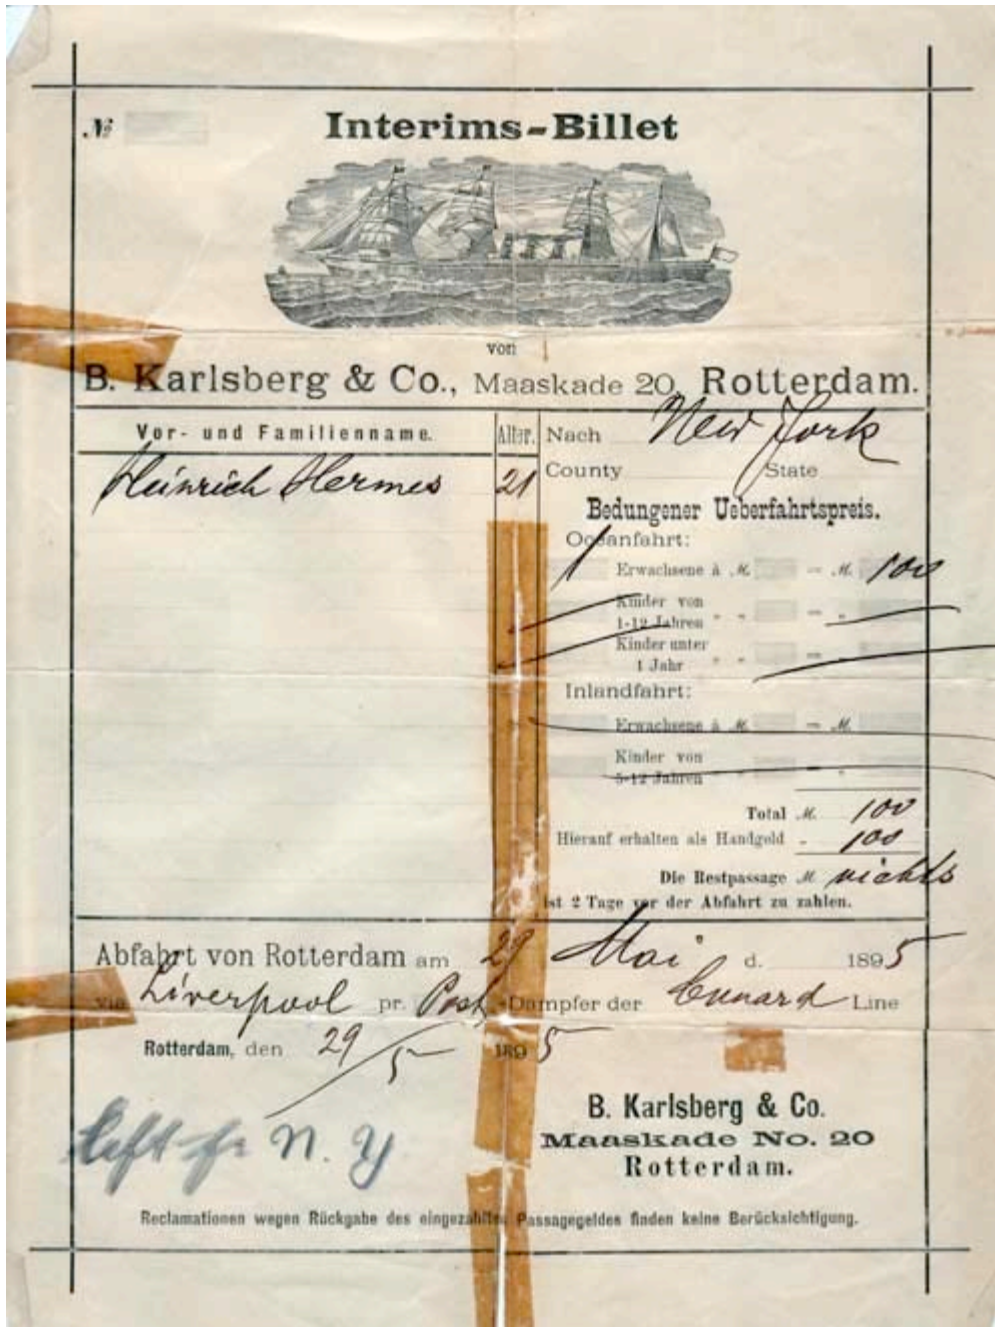 №
Interims-Billet
von
B. Karlsberg & Co., Maaskade 20, Rotterdam.
Vor- und Familienname. Alter. Nach New York
Heinrich Hermes 21 County State
Bedungener Ueberfahrtspreis.
Oceanfahrt:
1 Erwachsene à M. = M. 100
Kinder von
1-12 Jahren " " = "
Kinder unter
1 Jahr " " = "
Inlandfahrt:
Erwachsene à M. = M.
Kinder von
5-12 Jahren " " = "
Total M. 100
Hierauf erhalten als Handgeld " 100
Die Restpassage M. nichts
ist 2 Tage vor der Abfahrt zu zahlen.
Abfahrt von Rotterdam am 29 Mai d. 1895
via Liverpool pr. Post-Dampfer der Cunard Line
Rotterdam, den 29/5 1895
left fr N. Y
B. Karlsberg & Co.
Maaskade No. 20
Rotterdam.
Reclamationen wegen Rückgabe des eingezahlten Passagegeldes finden keine Berücksichtigung.